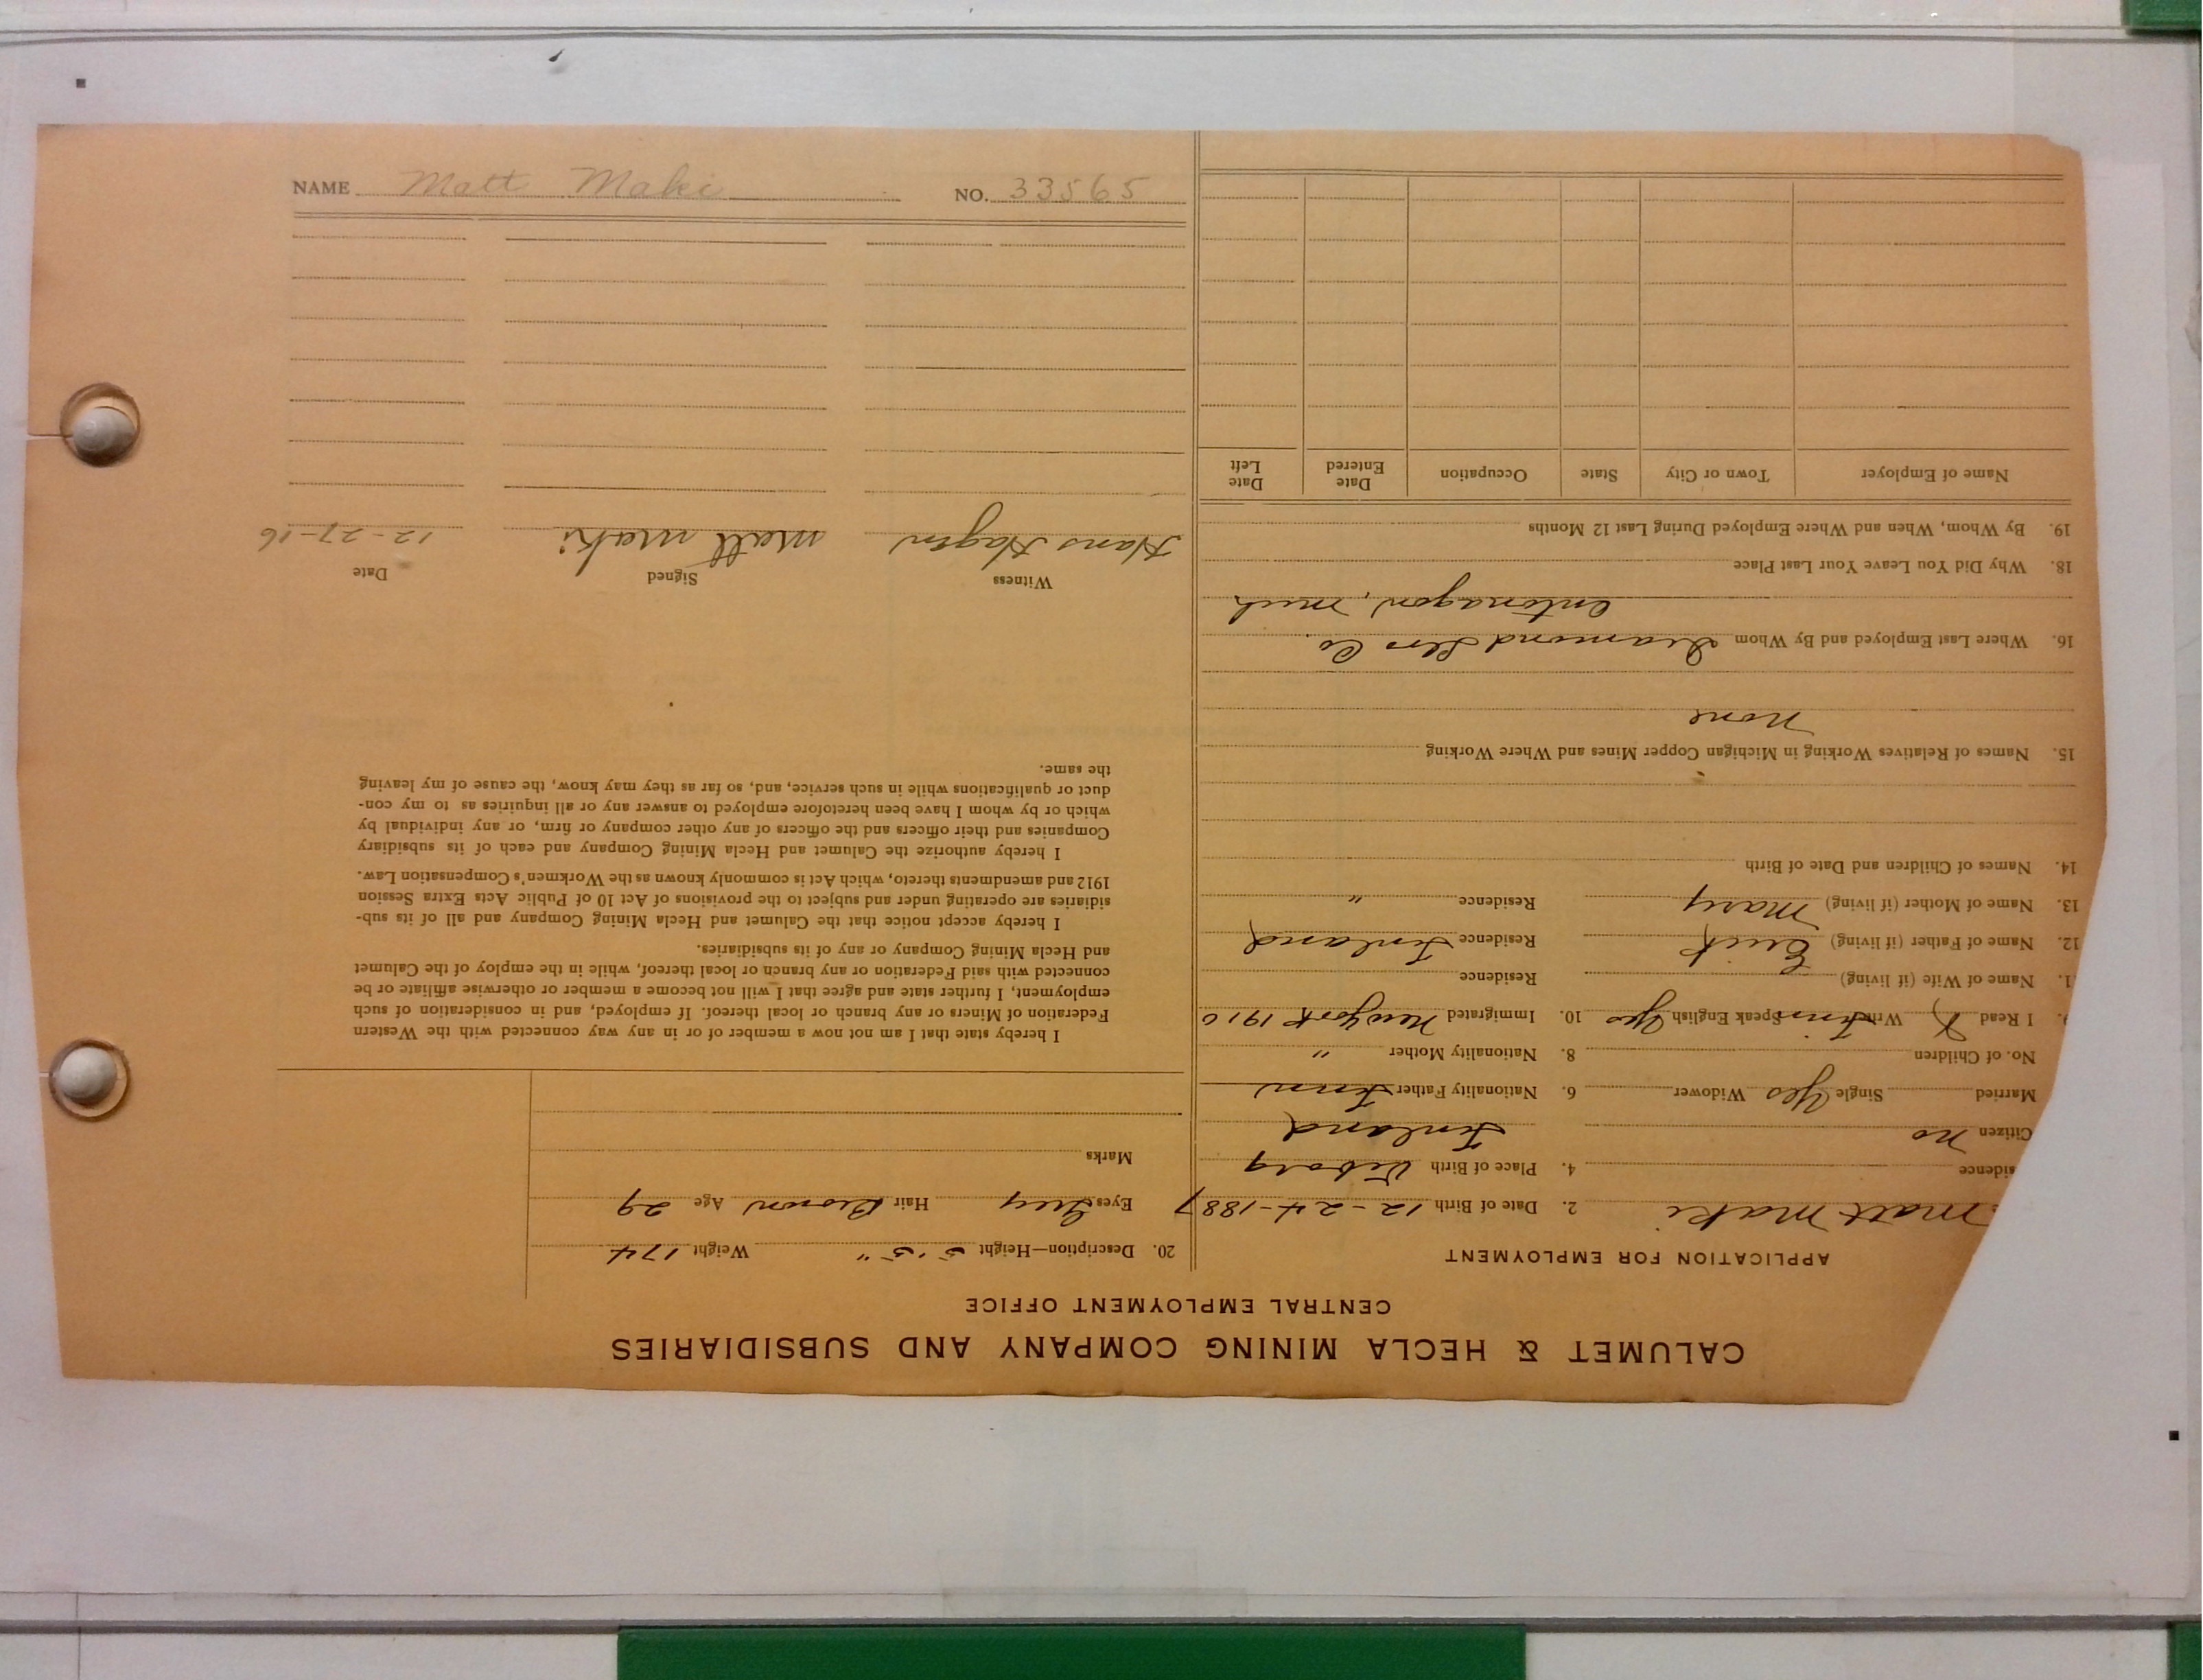 CALUMET & HECLA MINING COMPANY AND SUBSIDIARIES
CENTRAL EMPLOYMENT OFFICE
APPLICATION FOR EMPLOYMENT
Matt Maki 2. Date of Birth 12-24-1887
sidence 4. Place of Birth Viborg
Citizen no Finland
Married Single Yes Widower 6. Nationality Father Finn
No. of Children 8. Nationality Mother "
9. I Read X Write Finnis Speak English Yes 10. Immigrated New York 1910
1. Name of Wife (if living) Residence
12. Name of Father (if living) Erick Residence Finland
13. Name of Mother (if living) Mary Residence "
14. Names of Children and Date of Birth
15. Names of Relatives Working in Michigan Copper Mines and Where Working
None
16. Where Last Employed and By Whom Diamond Co
Ontonagon, Mich
18. Why Did You Leave Your Last Place
19. By Whom, When and Where Employed During Last 12 Months
Name of Employer Town or City State Occupation Date Entered Date Left
20. Description—Height 5'5" Weight 174
Eyes Grey Hair Brown Age 29
Marks
I hereby state that I am not now a member of or in any way connected with the Western
Federation of Miners or any branch or local thereof. If employed, and in consideration of such
employment, I further state and agree that I will not become a member or otherwise affiliate or be
connected with said Federation or any branch or local thereof, while in the employ of the Calumet
and Hecla Mining Company or any of its subsidiaries.
I hereby accept notice that the Calumet and Hecla Mining Company and all of its sub-
sidiaries are operating under and subject to the provisions of Act 10 of Public Acts Extra Session
1912 and amendments thereto, which Act is commonly known as the Workmen's Compensation Law.
I hereby authorize the Calumet and Hecla Mining Company and each of its subsidiary
Companies and their officers and the officers of any other company or firm, or any individual by
which or by whom I have been heretofore employed to answer any or all inquiries as to my con-
duct or qualifications while in such service, and, so far as they may know, the cause of my leaving
the same.
Witness Signed Date
Hans Hagen Matt Maki 12-27-16
NAME Matt Maki NO. 33565